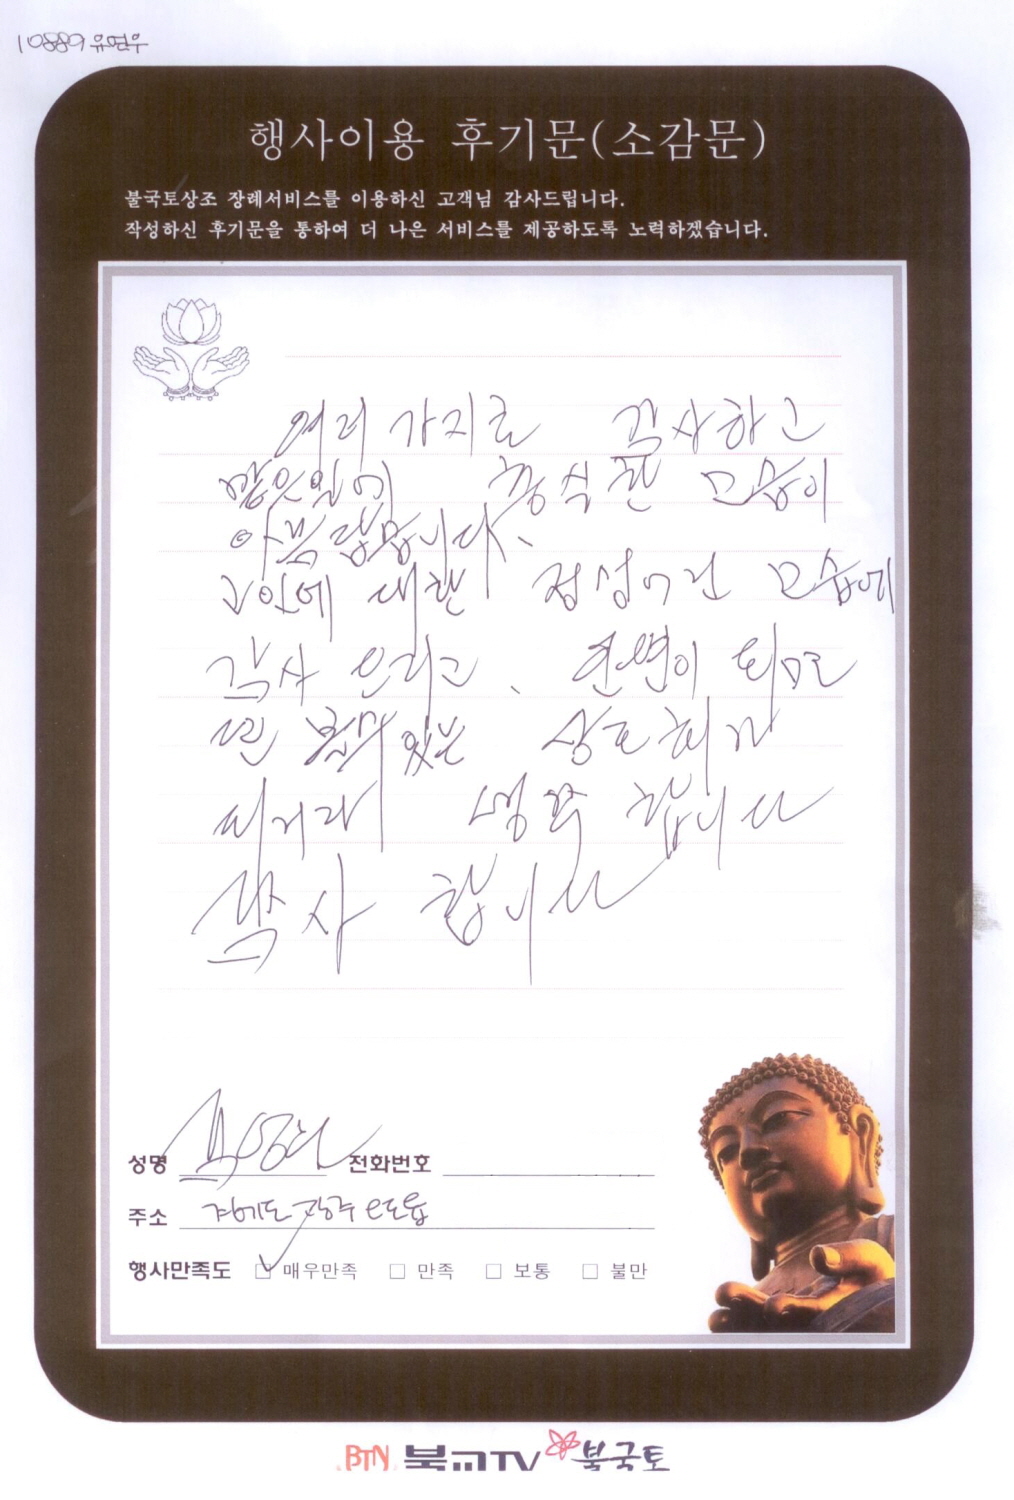 10889 유연우
행사이용 후기문(소감문)
불국토상조 장례서비스를 이용하신 고객님 감사드립니다.
작성하신 후기문을 통하여 더 나은 서비스를 제공하도록 노력하겠습니다.
여러 가지로 감사하고
맡은일에 충실한 모습이
아름답습니다.
고인에 대한 정성어린 모습에
감사 드리고, 인연이 되면
또 볼수 있는 상조회가
되거라 부탁 합니다
감사 합니다
성명 전화번호
주소 경기도 광주 오포읍
행사만족도 ☑ 매우만족 □ 만족 □ 보통 □ 불만
BTN 불교TV 불국토